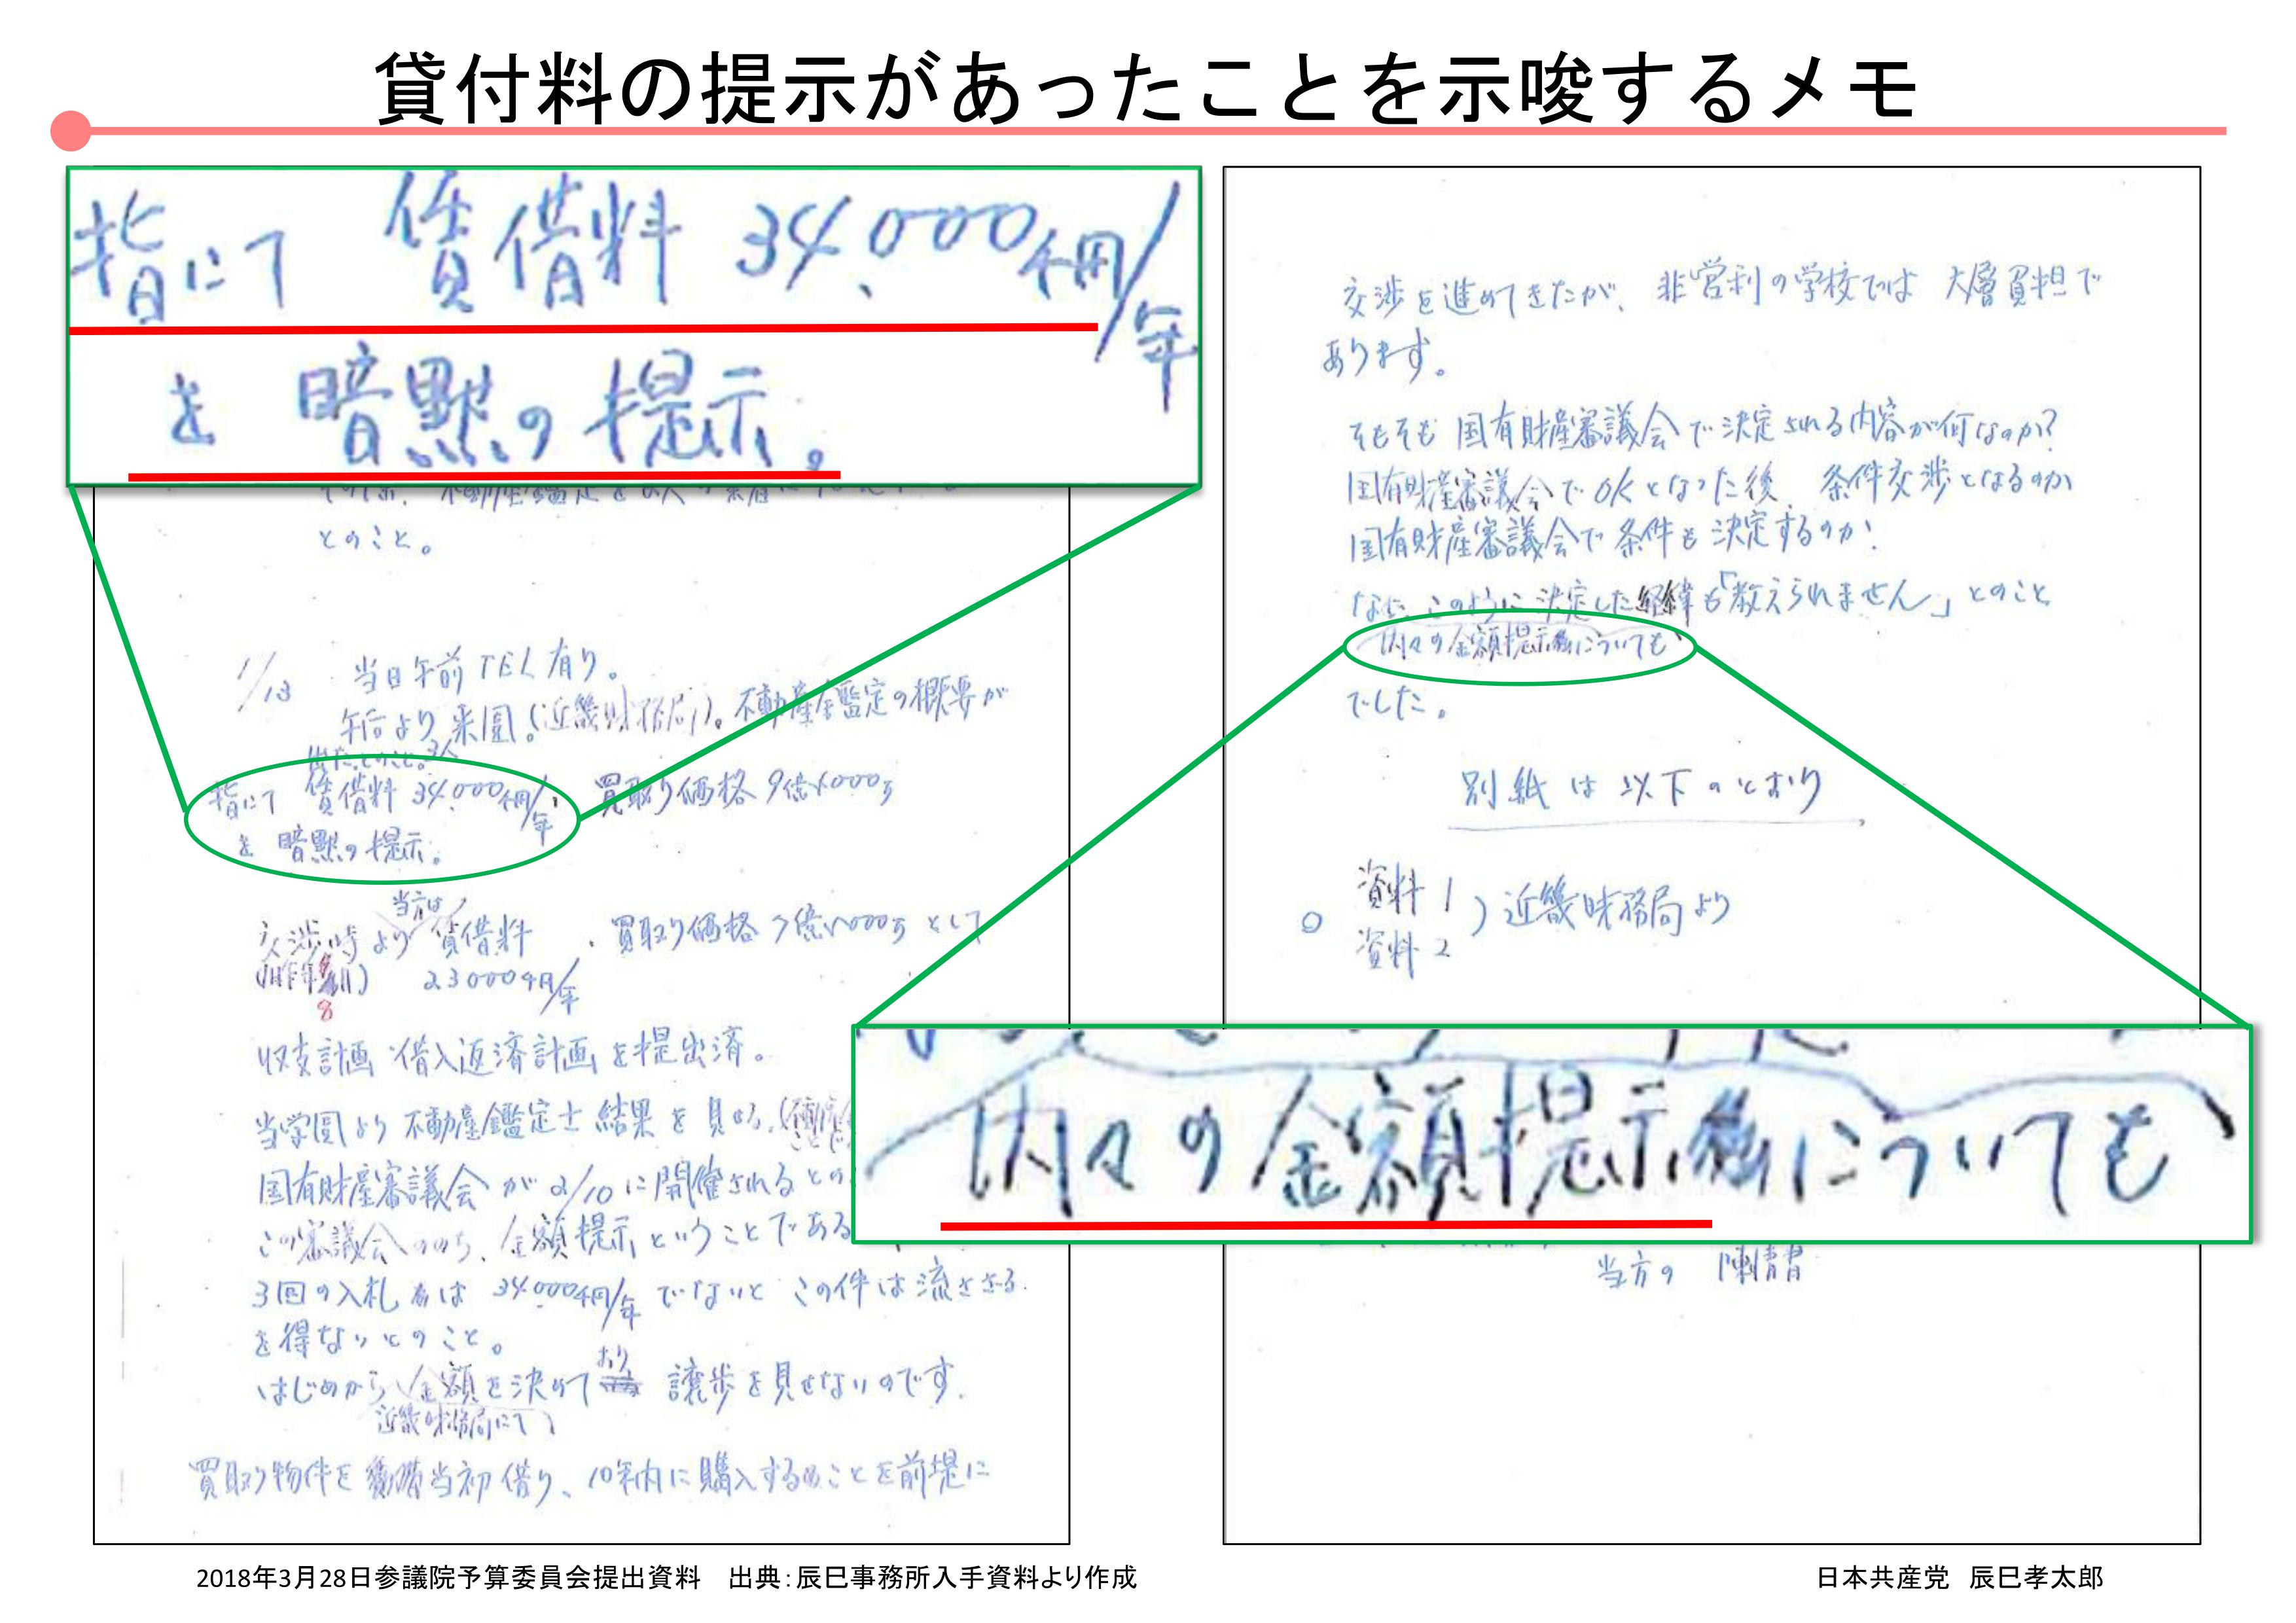 貸付料の提示があったことを示唆するメモ
指にて 賃借料 34,000千円/年
を 暗黙の提示。
とのこと。
1/13 当日午前TEL有り。
午后より来園。(近畿財務局)。不動産鑑定の概要が
出たとのこと。3人
指にて 賃借料 34,000千円/年、買取り価格 9億
を 暗黙の提示。
当方は
交渉時より 賃借料、買取り価格 7億 として
23000千円/年
8
収支計画 借入返済計画を提出済。
当学園より 不動産鑑定士 結果を見せる。
国有財産審議会が 2/10に開催されるとの
この審議会ののち、金額提示ということである
3回の入札 は 34,000千円/年でないと この件は流さざる
を得ないとのこと。
おり
はじめから 金額を決めて 譲歩を見せないのです。
近畿財務局にて
買取り物件を 当初借り、10年内に購入することを前堤に
交渉を進めてきたが、非営利の学校では 大層負担で
あります。
そもそも 国有財産審議会で決定される内容が何なのか?
国有財産審議会でOKとなった後、条件交渉となるのか
国有財産審議会で条件も決定するのか!
なお、このように決定した経緯も「教えられません」とのこと
内々の金額提示についても
でした。
別紙は以下のとおり
資料1
資料2
)近畿財務局より
内々の金額提示についても
当方の 陳情書
2018年3月28日参議院予算委員会提出資料 出典:辰巳事務所入手資料より作成
日本共産党 辰巳孝太郎